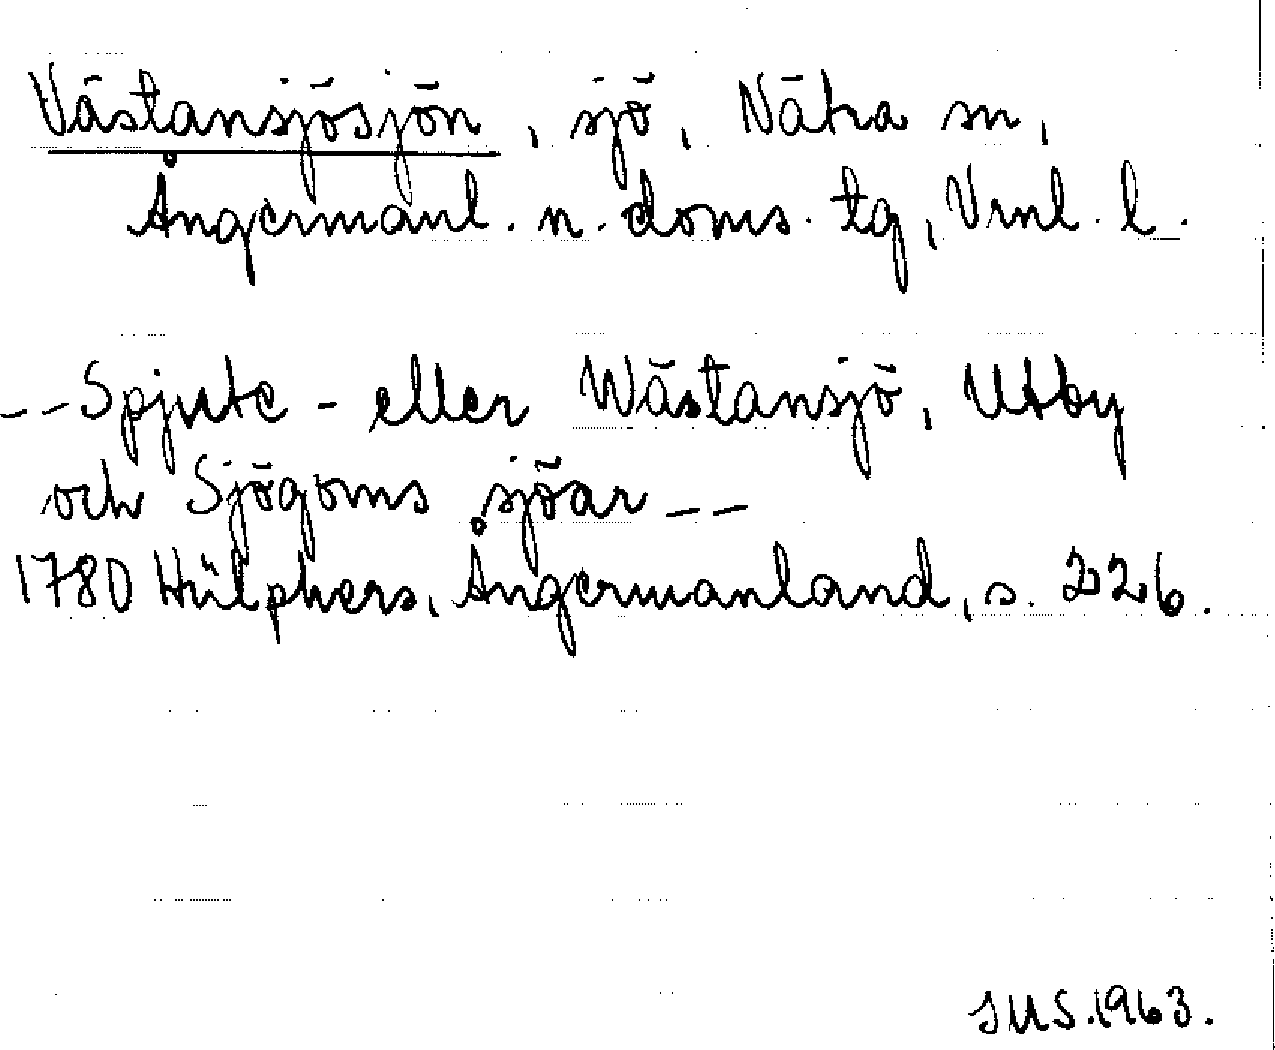 Västansjösjön, sjö, Nätra sn,
Ångermanl. n. doms. tg, Vrnl. l.
-- Spjute - eller Wästansjö, Utby
och Sjögoms sjöar --
1780 Hülphers, Ångermanland, s. 226.
JUS. 1963.